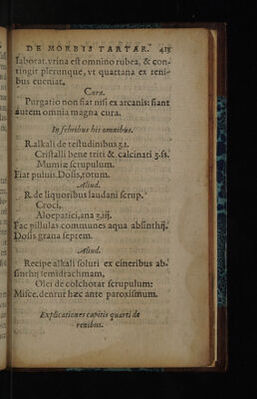 DE MORBIS TARTAR. 413
laborat. vrina est omnino rubea, & con-
tingit plerunque, vt quartana ex reni-
bus eueniat.
Cura.
Purgatio non fiat nisi ex arcanis: fiant
autem omnia magna cura.
In febribus his omnibus.
R. alkali de testudinibus
Cristalli bene triti & calcinati
Mumiæ scrupulum.
Fiat puluis. Dosis, totum.
Aliud.
R. de liquoribus laudani scrup.
Croci,
Aloepatici, ana
Fac pillulas communes aqua absinthij.
Dosis grana septem.
Aliud.
Recipe alkali soluti ex cineribus ab-
sinthij semidrachmam,
Olei de colchotar scrupulum:
Misce, dentur hæc ante paroxismum.
Explicationes capitis quarti de
renibus.